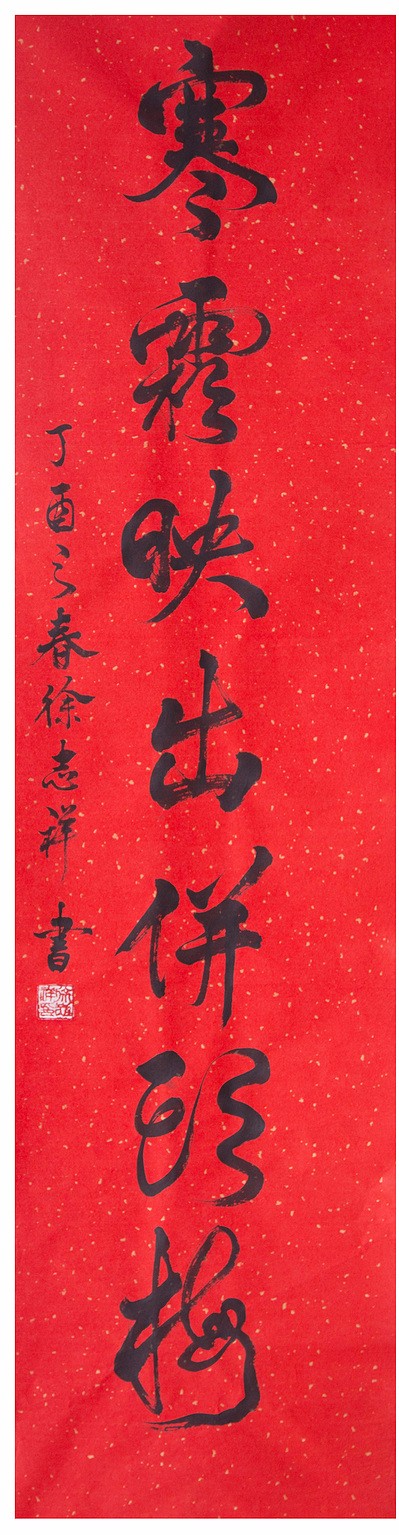 寒霜映出併頭梅
丁酉之春徐志祥書